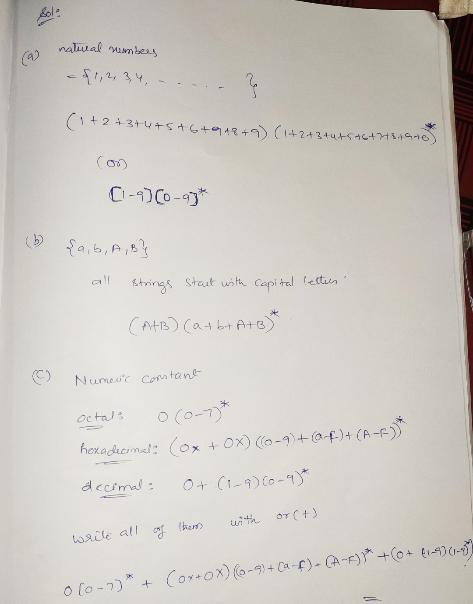 Sol:
(a) natural numbers
= {1, 2, 3 4, - - - - - - }
(1+2+3+4+5+6+9+8+9) (1+2+3+4+5+6+7+8+9+0)*
(or)
[1-9][0-9]*
(b) {a, b, A, B}
all strings start with capital letters.
(A+B) (a+b+A+B)*
(C) Numeric constant
octal: 0 (0-7)*
hexadecimal: (0x + 0X) ((0-9)+(a-f)+(A-F))*
decimal: 0+ (1-9)(0-9)*
write all of them with or (+)
0 (0-7)* + (0x+0X) ((0-9)+(a-f)+(A-F))* + (0+ (1-9)(1-9)*)